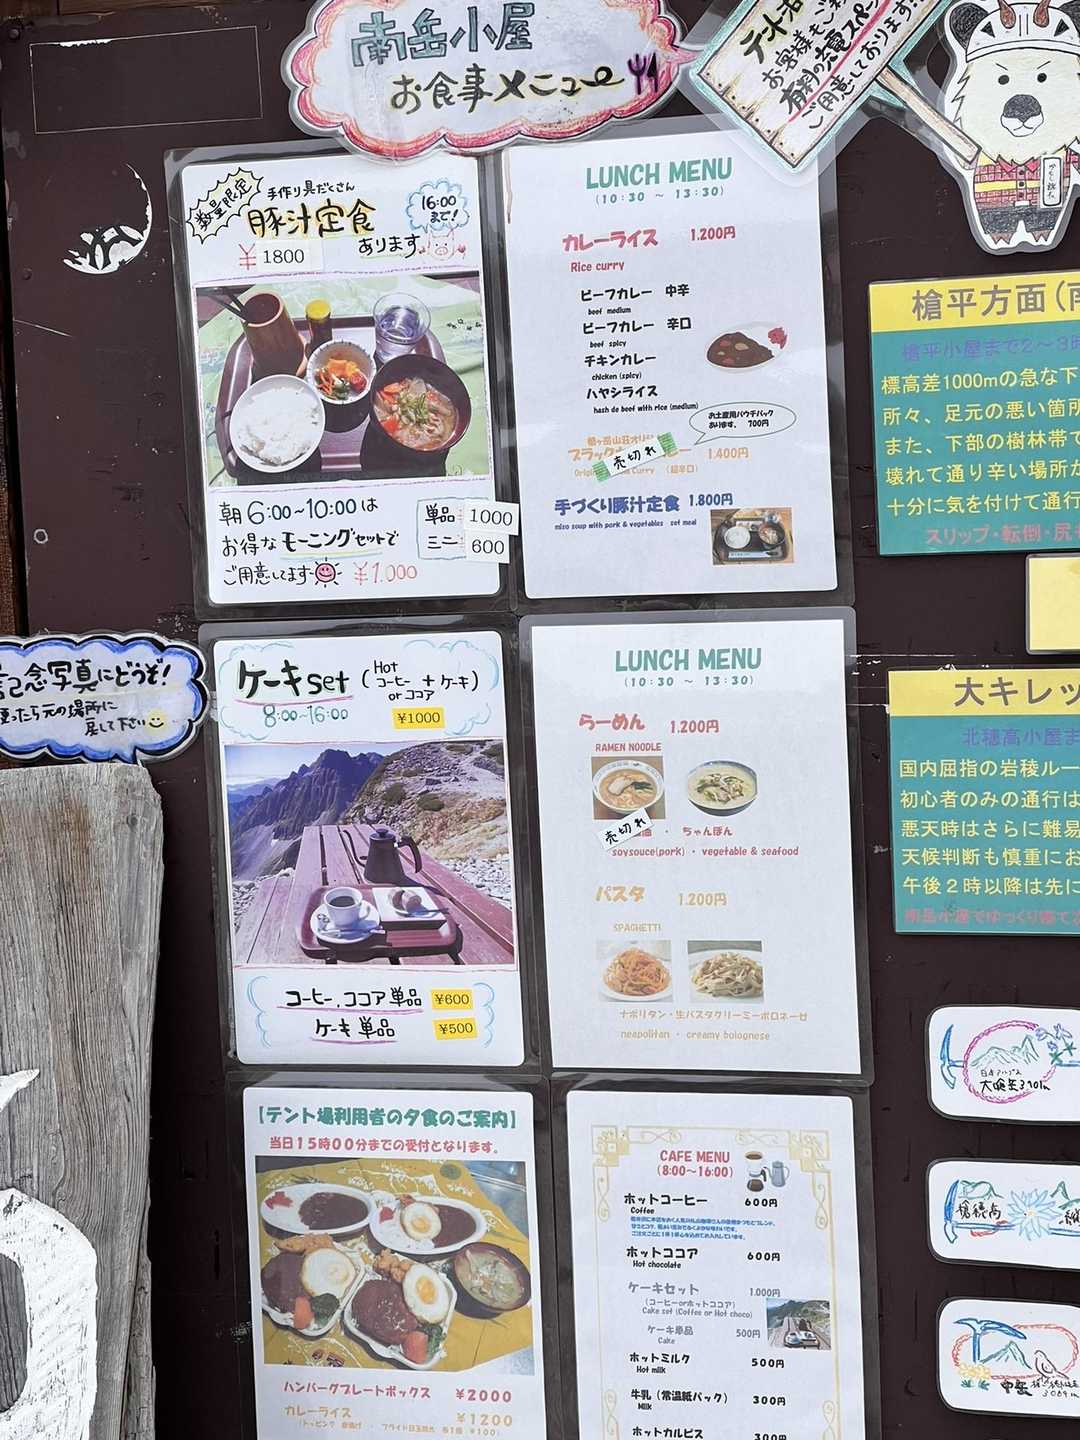 南岳小屋
お食事メニュー
お客様もご利
有料の充電スペー
ご用意しております!!
数量限定
手作り具だくさん
豚汁定食
あります
16:00
まで!
¥1800
朝6:00~10:00は
お得なモーニングセットで
ご用意してます
¥1.000
単品 1000
ミニ 600
LUNCH MENU
(10:30 ~ 13:30)
カレーライス 1.200円
Rice curry
ビーフカレー 中辛
beef medium
ビーフカレー 辛口
beef spicy
チキンカレー
chicken (spicy)
ハヤシライス
hash de beef with rice (medium)
お土産用パウチパック
あります。 700円
売切れ
1.400円
Curry (超辛口)
手づくり豚汁定食 1.800円
miso soup with pork & vegetables set meal
槍平方面(南
槍平小屋まで2~3時
標高差1000mの急な下
所々、足元の悪い箇所
また、下部の樹林帯で
壊れて通り辛い場所か
十分に気を付けて通行
スリップ・転倒・尻も
記念写真にどうぞ!
使ったら元の場所に
戻して下さい
ケーキset (Hot コーヒー or ココア + ケーキ)
8:00~16:00
¥1000
コーヒー、ココア単品 ¥600
ケーキ単品 ¥500
LUNCH MENU
(10:30 ~ 13:30)
らーめん 1.200円
RAMEN NOODLE
売切れ
油 ・ ちゃんぽん
soysouce(pork) ・ vegetable & seafood
パスタ 1.200円
SPAGHETTI
ナポリタン・生パスタクリーミーボロネーゼ
neapolitan ・ creamy bolognese
大キレッ
北穂高小屋ま
国内屈指の岩稜ルー
初心者のみの通行は
悪天時はさらに難易
天候判断も慎重にお
午後2時以降は先に
南岳小屋でゆっくり
【テント場利用者の夕食のご案内】
当日15時00分までの受付となります。
ハンバーグプレートボックス ¥2000
カレーライス ¥1200
CAFE MENU
(8:00~16:00)
ホットコーヒー 600円
Coffee
ホットココア 600円
Hot chocolate
ケーキセット 1.000円
(コーヒーorホットココア)
Cake set (Coffee or Hot choco)
ケーキ単品 500円
Cake
ホットミルク 500円
Hot milk
牛乳(常温紙パック) 300円
Milk
ホットカルピス 300円
日本アルプス
大喰岳3101m
槍穂高
中岳